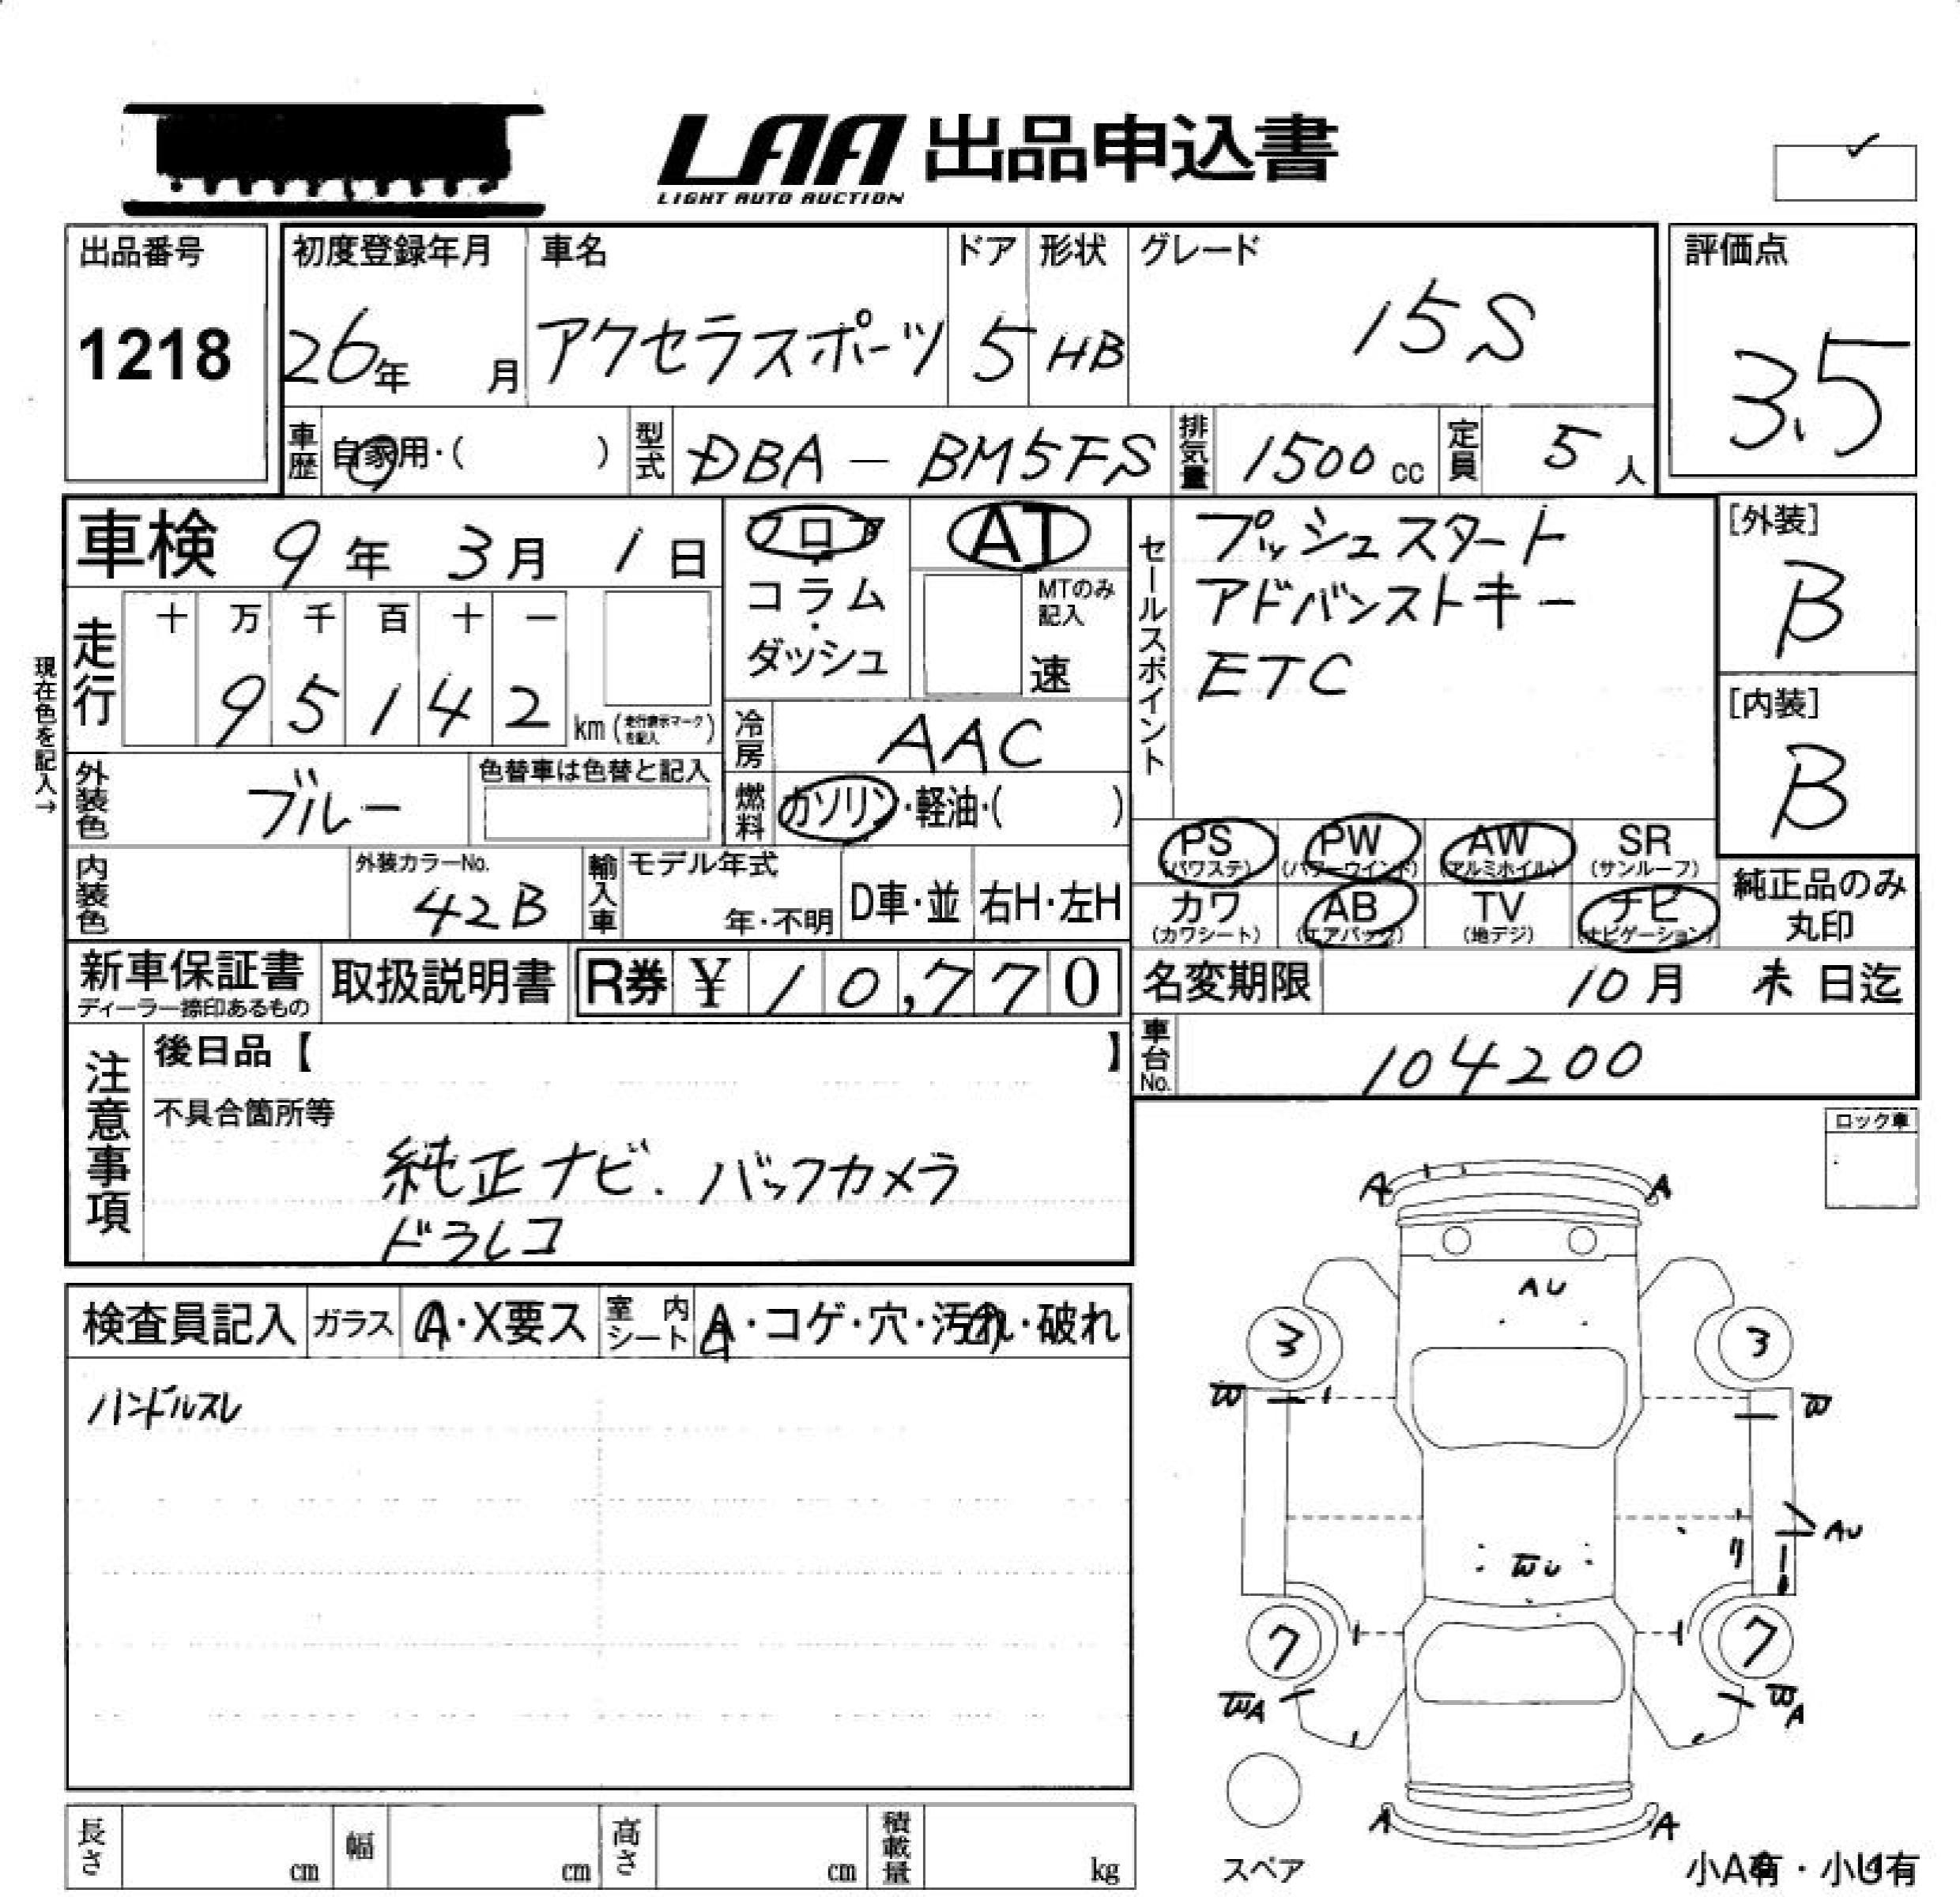 LAA 出品申込書
LIGHT AUTO AUCTION
出品番号
1218
初度登録年月
26年 月
車名
アクセラスポーツ
ドア
5
形状
HB
グレード
15S
評価点
3.5
車歴
自家用・( )
型式
DBA - BM5FS
排気量
1500 cc
定員
5 人
車検 9年 3月 1日
走行
十 万 千 百 十 一
9 5 1 4 2 km (走行表示マークを記入)
現在色を記入→
外装色
ブルー
色替車は色替と記入
内装色
外装カラーNo.
42B
フロア
・
コラム
・
ダッシュ
AT
MTのみ
記入
速
冷房
AAC
燃料
ガソリン・軽油・( )
輸入車
モデル年式
年・不明
D車・並
右H・左H
セールスポイント
プッシュスタート
アドバンストキー
ETC
[外装]
B
[内装]
B
PS (パワステ)
PW (パワーウインド)
AW (アルミホイル)
SR (サンルーフ)
カワ (カワシート)
AB (エアバック)
TV (地デジ)
ナビ (ナビゲーション)
純正品のみ
丸印
新車保証書
ディーラー捺印あるもの
取扱説明書
R券 ¥10,770
名変期限 10月 末日迄
車台No.
104200
注意事項
後日品【 】
不具合箇所等
純正ナビ.バックカメラ
ドラレコ
ロック車
検査員記入
ガラス
A・X要ス
室内シート
A・コゲ・穴・汚れ・破れ
ハンドルスレ
A A
AU
3 3
W W
AU
WU
7 7
WA WA
A A
スペア
小A有・小U有
長さ cm
幅 cm
高さ cm
積載量 kg